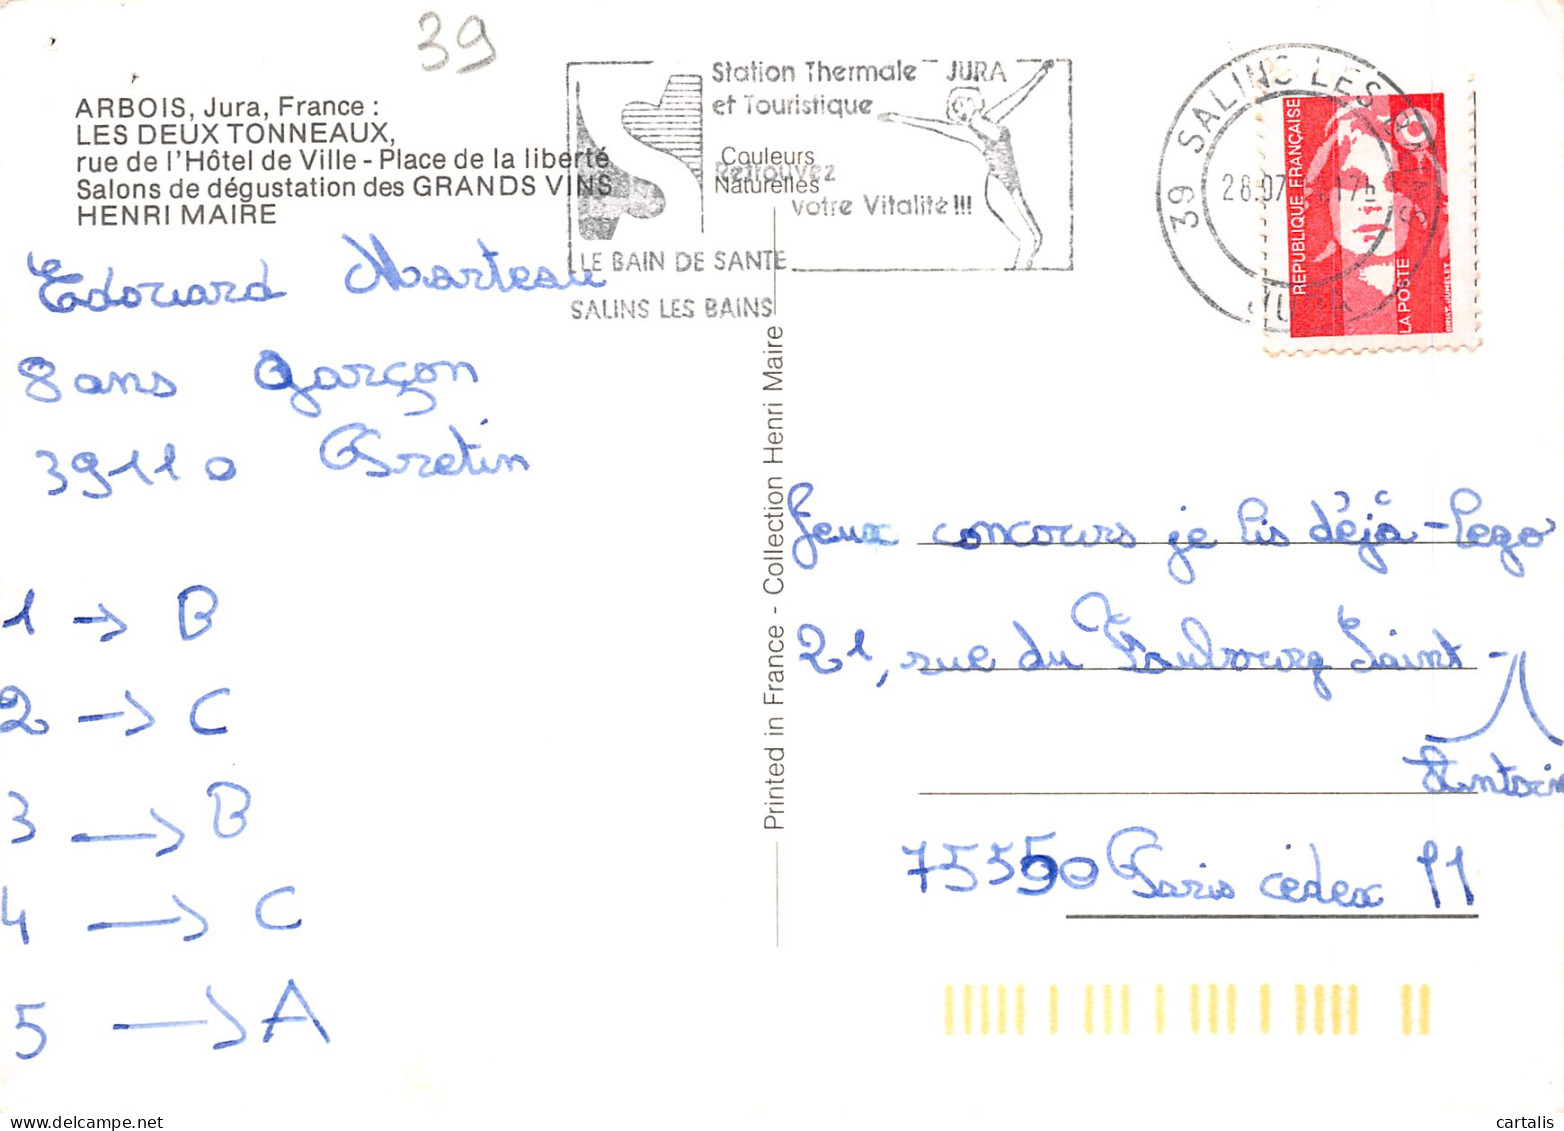 39
ARBOIS, Jura, France :
LES DEUX TONNEAUX,
rue de l'Hôtel de Ville - Place de la liberté
Salons de dégustation des GRANDS VINS
HENRI MAIRE
Station Thermale JURA
et Touristique
Couleurs
Naturelles
Retrouvez
votre Vitalité !!!
LE BAIN DE SANTE
SALINS LES BAINS
39 SALINS LES BAINS
28.07 17h
JURA
REPUBLIQUE FRANÇAISE
LA POSTE
Edouard Marteau
8 ans garçon
39110 Bretin
1 → B
2 → C
3 → B
4 → C
5 → A
Printed in France - Collection Henri Maire
Jeux concours je lis déjà - Lego
21, rue du Faubourg Saint -
Antoin
75550 Paris cédex 11
www.cartalis.com
cartalis